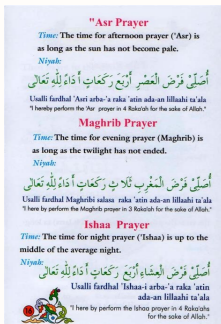 "Asr Prayer
Time: The time for afternoon prayer ('Asr) is
as long as the sun has not become pale.
Niyah:
أُصَلِّيْ فَرْضَ الْعَصْرِ أَرْبَعَ رَكَعَاتٍ أَدَاءً لِلّٰهِ تَعَالَى
Usalli fardhal 'Asri arba-'a raka 'atin ada-an lillaahi ta'ala
"I hereby perform the 'Asr prayer in 4 Raka'ah for the sake of Allah."
Maghrib Prayer
Time: The time for evening prayer (Maghrib) is
as long as the twilight has not ended.
Niyah:
أُصَلِّيْ فَرْضَ الْمَغْرِبِ ثَلَاثَ رَكَعَاتٍ أَدَاءً لِلّٰهِ تَعَالَى
Usalli fardhal Maghribi salasa raka 'atin ada-an lillaahi ta'ala
"I here by perform the Maghrib prayer in 3 Raka'ah for the sake of Allah."
Ishaa Prayer
Time: The time for night prayer ('Ishaa) is up to the
middle of the average night.
Niyah:
أُصَلِّيْ فَرْضَ الْعِشَاءِ أَرْبَعَ رَكَعَاتٍ أَدَاءً لِلّٰهِ تَعَالَى
Usalli fardhal 'Ishaa-i arba-'a raka 'atin
ada-an lillaahi ta'ala
"I here by perform the Ishaa prayer in 4 Raka'ahs
for the sake of Allah."